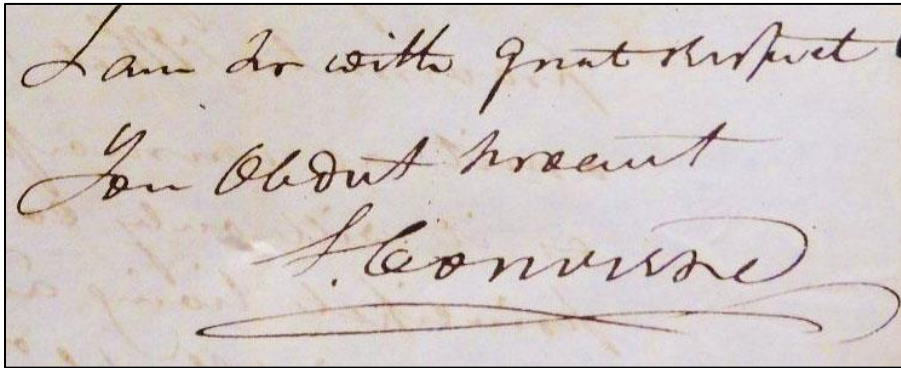 I am Sr with great respect
Your Obdnt Servant
S. Converse